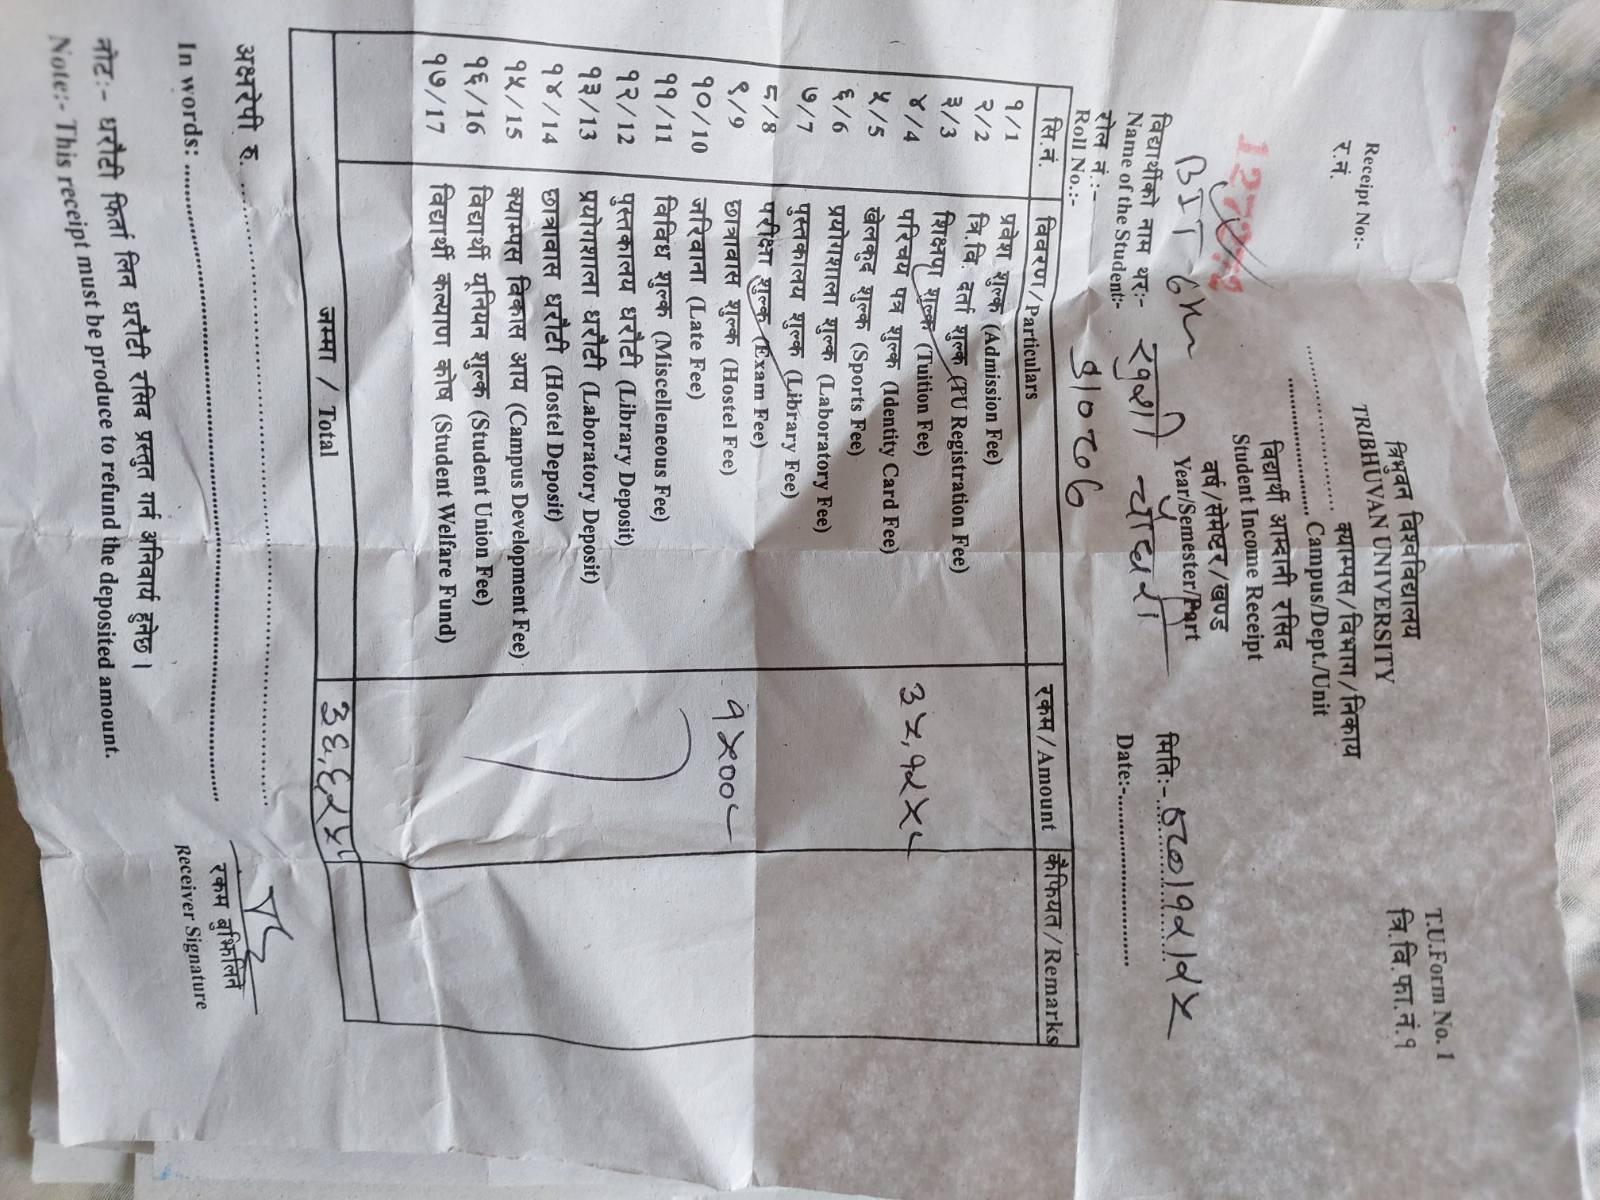 T.U.Form No. 1
त्रि.वि.फा.नं.१
त्रिभुवन विश्वविद्यालय
TRIBHUVAN UNIVERSITY
Receipt No:-
र.नं.
.................... क्याम्पस/विभाग/निकाय
.................... Campus/Dept./Unit
विद्यार्थी आम्दानी रसिद
Student Income Receipt
BIT 6th
वर्ष/सेमेष्टर/खण्ड
Year/Semester/Part
मिति:- ८०।१२।२५
Date:-....................
विद्यार्थीको नाम थर:- खुशी चौधरी
Name of the Student:-
रोल नं.:-
Roll No.:-
सि.नं. विवरण/Particulars रकम/Amount कैफियत/Remarks
१/1 प्रवेश शुल्क (Admission Fee)
२/2 त्रि.वि. दर्ता शुल्क (TU Registration Fee)
३/3 शिक्षण शुल्क (Tuition Fee)
४/4 परिचय पत्र शुल्क (Identity Card Fee) ३५,१२५
५/5 खेलकुद शुल्क (Sports Fee)
६/6 प्रयोगशाला शुल्क (Laboratory Fee)
७/7 पुस्तकालय शुल्क (Library Fee)
८/8 परीक्षा शुल्क (Exam Fee)
९/9 छात्रावास शुल्क (Hostel Fee) १५००
१०/10 जरिवाना (Late Fee)
११/11 विविध शुल्क (Miscelleneous Fee)
१२/12 पुस्तकालय धरौटी (Library Deposit)
१३/13 प्रयोगशाला धरौटी (Laboratory Deposit)
१४/14 छात्रावास धरौटी (Hostel Deposit)
१५/15 क्याम्पस विकास आय (Campus Development Fee)
१६/16 विद्यार्थी यूनियन शुल्क (Student Union Fee)
१७/17 विद्यार्थी कल्याण कोष (Student Welfare Fund)
जम्मा / Total ३६,६२५
अक्षरेपी रु. ....................
In words: ....................
रकम बुझिलिने
Receiver Signature
नोट:- धरौटी फिर्ता लिन धरौटी रसिद प्रस्तुत गर्न अनिवार्य हुनेछ ।
Note:- This receipt must be produce to refund the deposited amount.